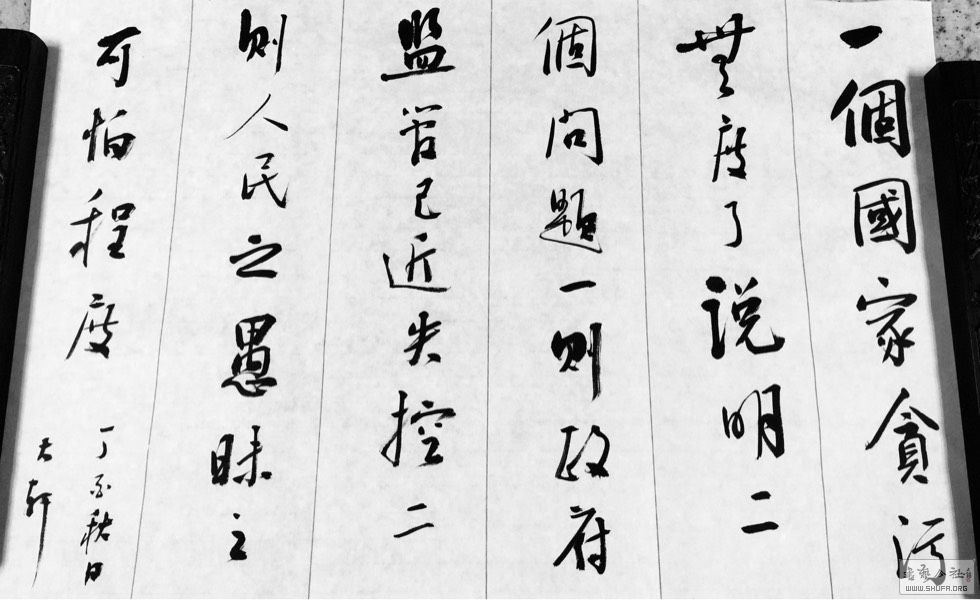 一個國家貪污
無度了説明二
個問題一则政府
監管已近失控二
则人民之愚昧之
可怕程度
丁酉秋日
天軒
書藝公社
WWW.SHUFA.ORG